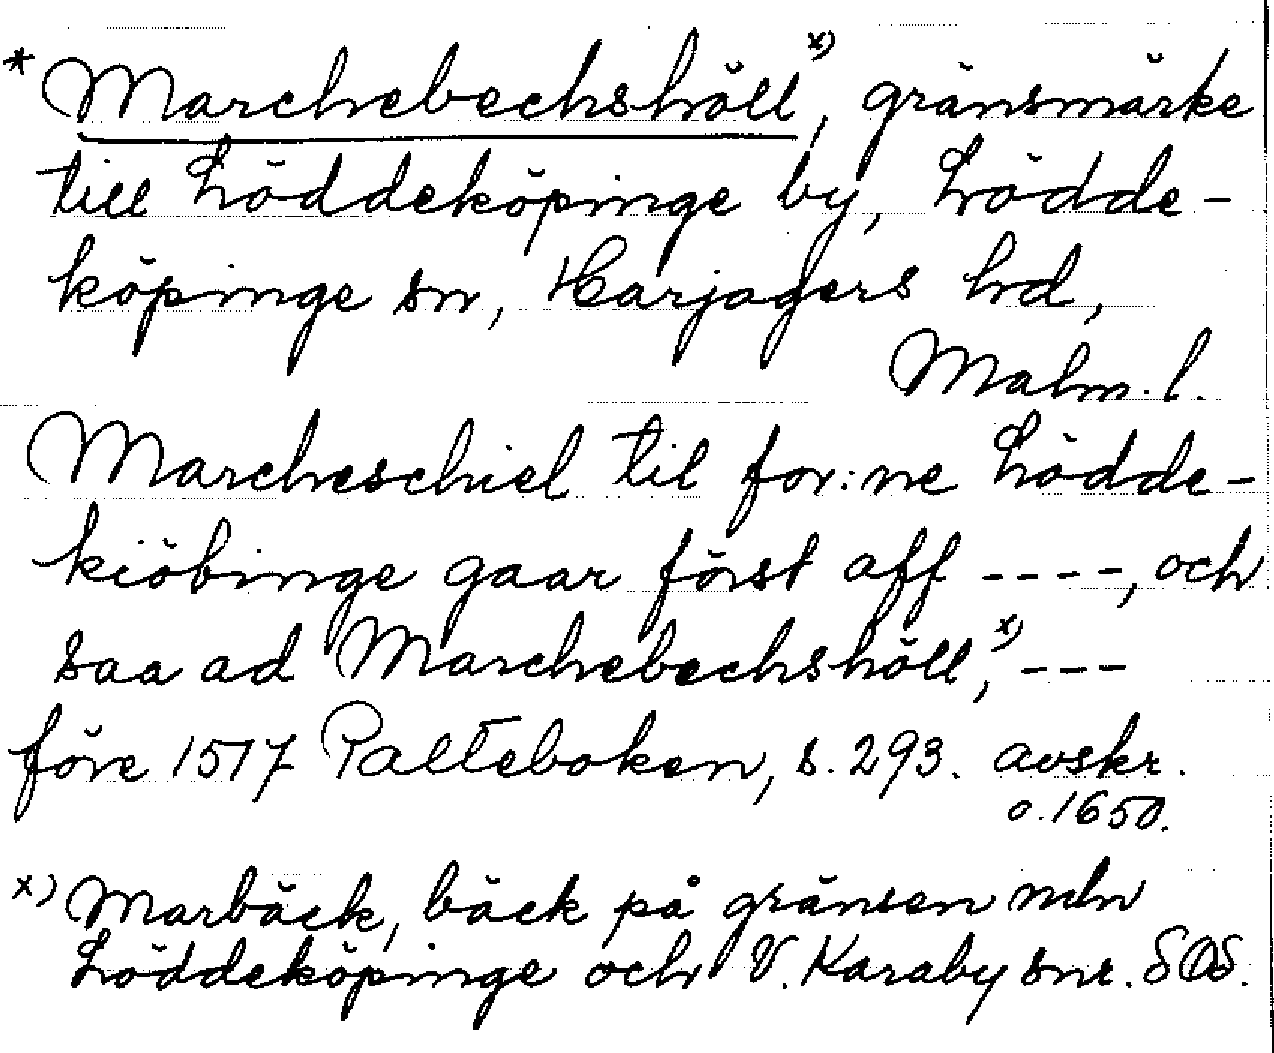 * Marchebechshöll x), gränsmärke
till Löddeköpinge by, Lödde-
köpinge sn, Harjagers hd,
Malm. l.
Marcheschiel til for:ne Lödde-
kiöbinge gaar först aff ----, och
saa ad Marchebechshöll, x) ---
före 1517 Palteboken, s. 293. avskr.
o. 1650.
x) Marbäck, bäck på gränsen mln
Löddeköpinge och V. Karaby snr. SOS.